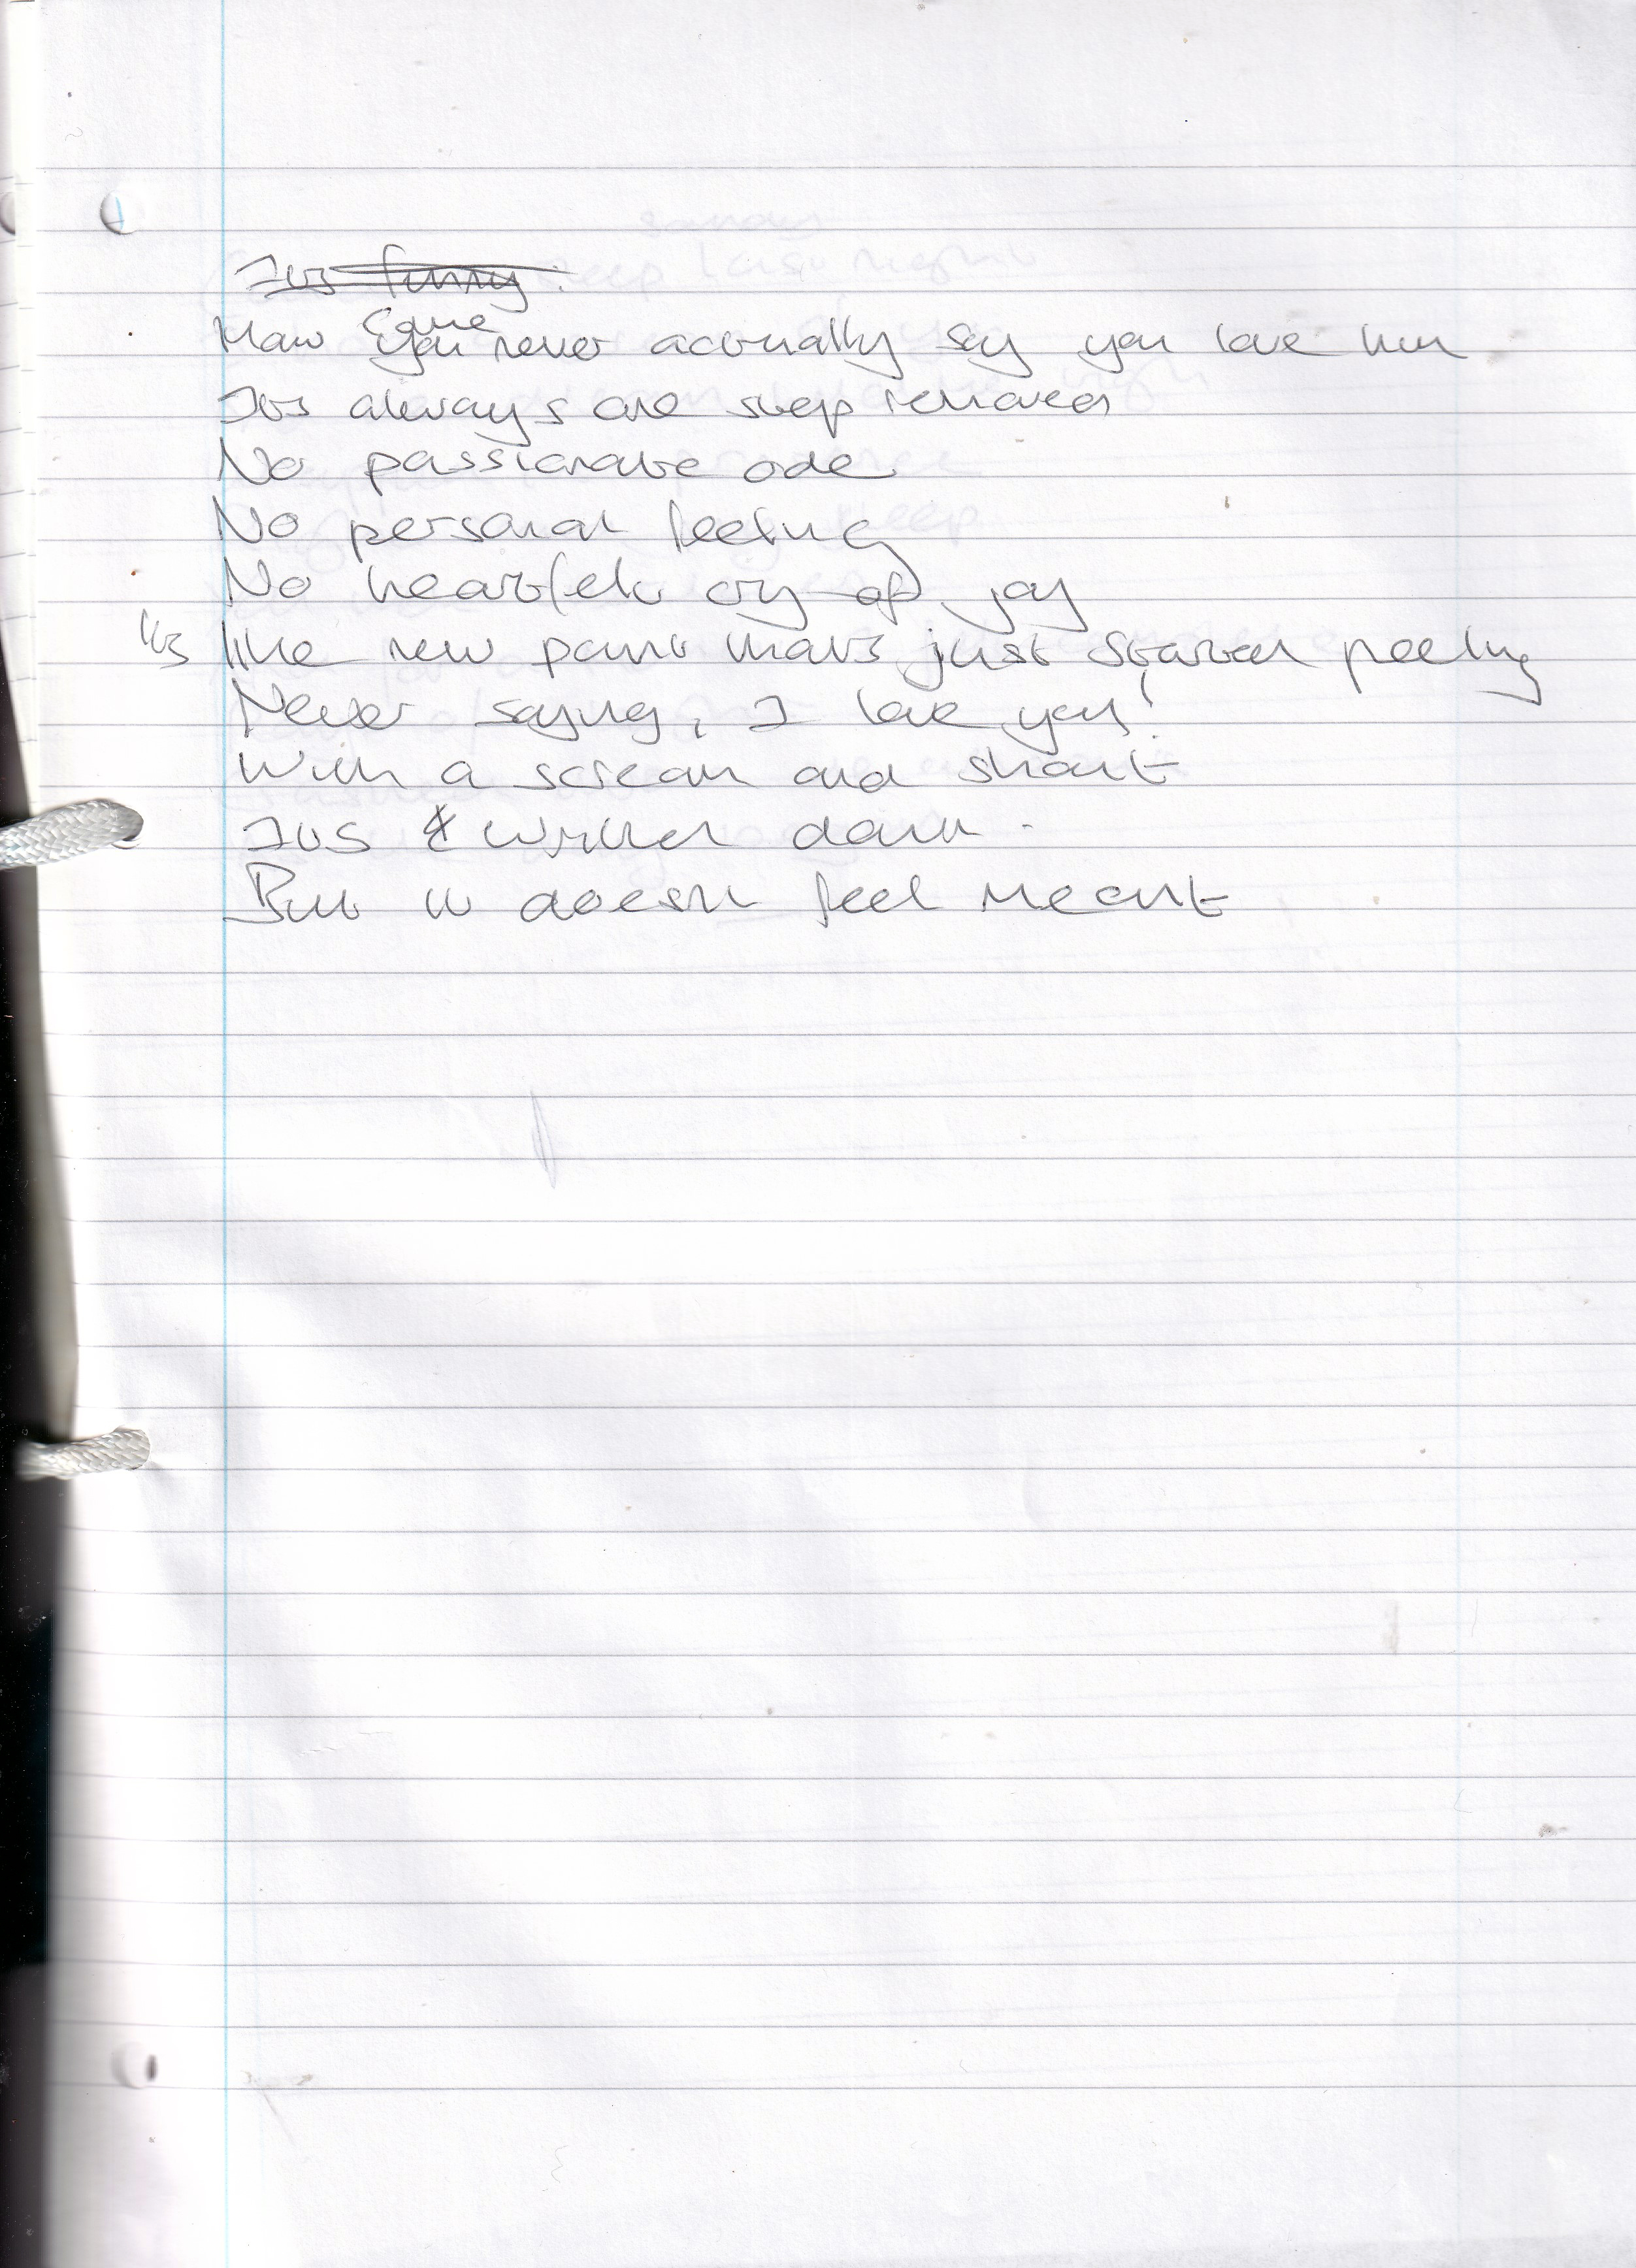 Its funny.
How come you never actually say you love him
Its always one step removed
No passionate ode
No personal feeling
No heartfelt cry of joy
Its like new paint thats just started peeling
Never saying, I love you!
With a scream and shout
Its written down.
But it doesn't feel meant